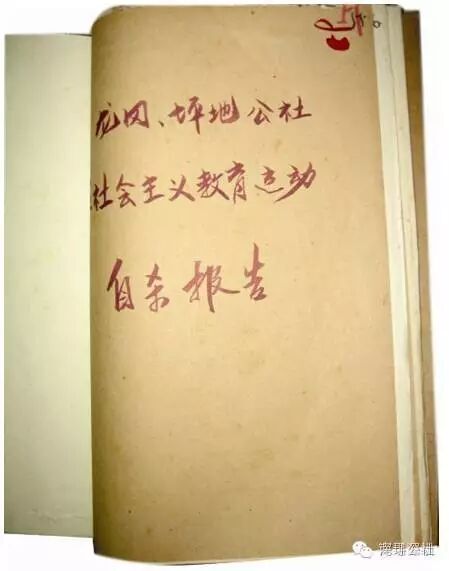 龙岗、坪地公社
社会主义教育运动
自杀报告